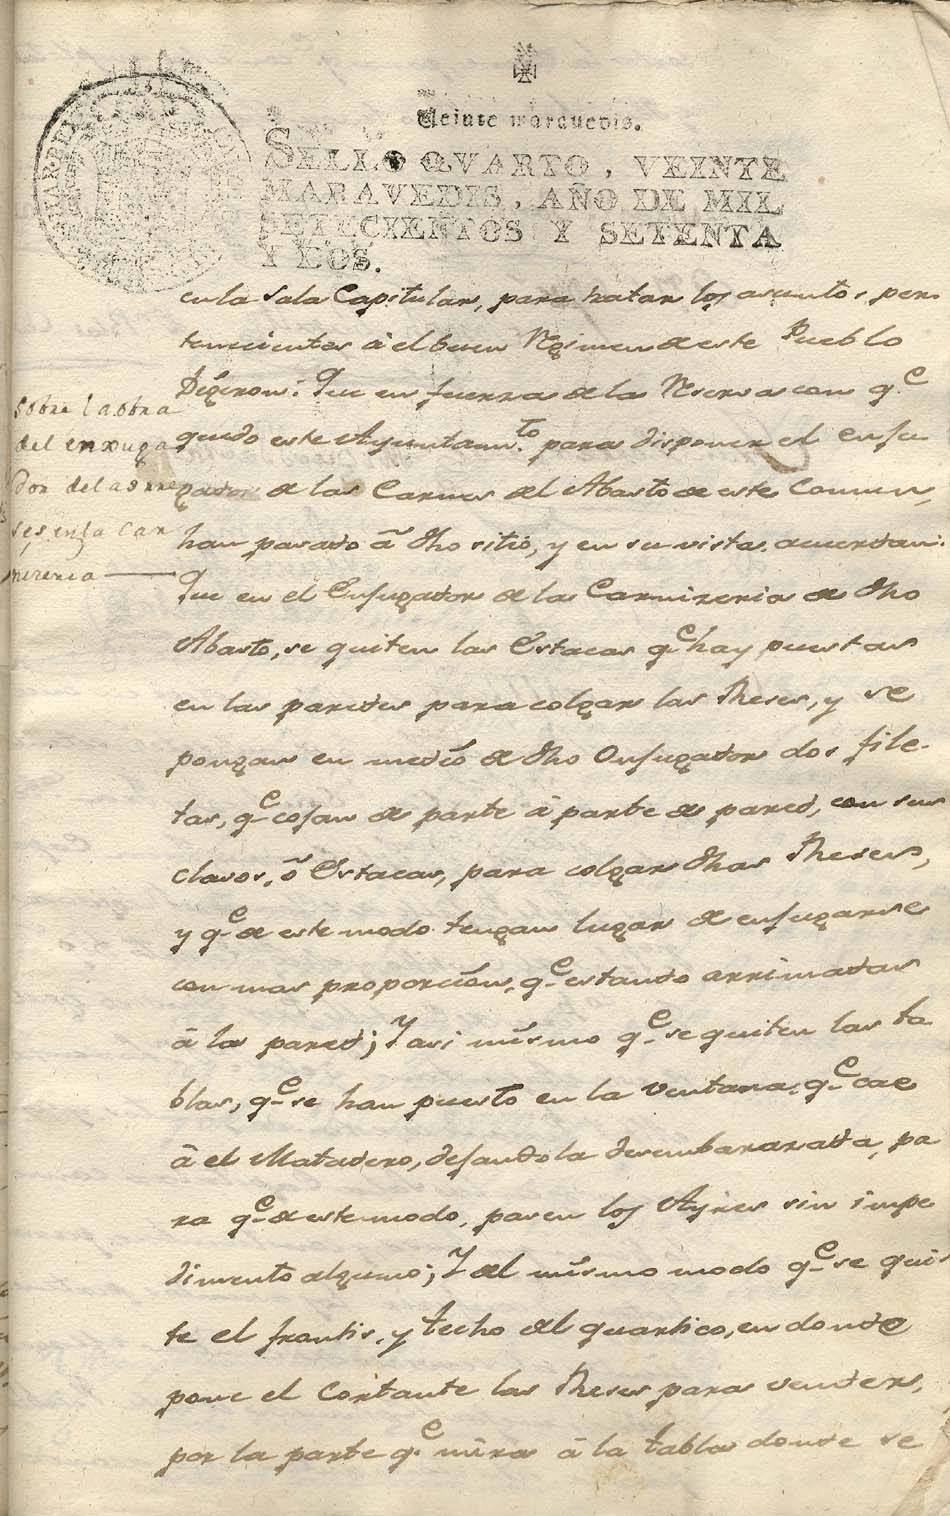 Veinte maravedis.
SELLO QVARTO, VEINTE
MARAVEDIS, AÑO DE MIL
SETECIENTOS Y SETENTA
Y DOS.
en la Sala Capitular, para tratar los asuntos, per
tenecientes â el buen Regimen de este Pueblo
Digeron: Que en fuerza de la Reserva con qe
quedo este Ayuntamto para disponer el enju
gador de las Carnes del Abasto de este Comun,
han pasado â dho sitio, y en su vista acuerdan:
Que en el Enjugador de la Carnizeria de dho
Abasto, se quiten las Estacas qe hay puestas
en las paredes para colgar las Rheses, y se
pongan en medio de dho Enjugador dos file-
tas, qe cojan de parte â parte de pared, con sus
clavos, ô Estacas, para colgar dhas Rheses,
y qe de este modo tengan lugar de enjugarse
con mas proporcion, qe estando arrimadas
â la pared; Y asi mismo qe se quiten las ta
blas, qe se han puesto en la ventana, qe cae
â el Matadero, dejandola desembarazada, pa
ra qe de este modo, pasen los Ayres sin impe
dimento alguno; Y del mismo modo qe se qui
te el frontis, y techo del quartico, en donde
pone el Cortante las Rheses para vender,
por la parte qe mira â la tabla donde se
Sobre la obra
del enxuga
dor del adonre
ses, en la Car
nizeria